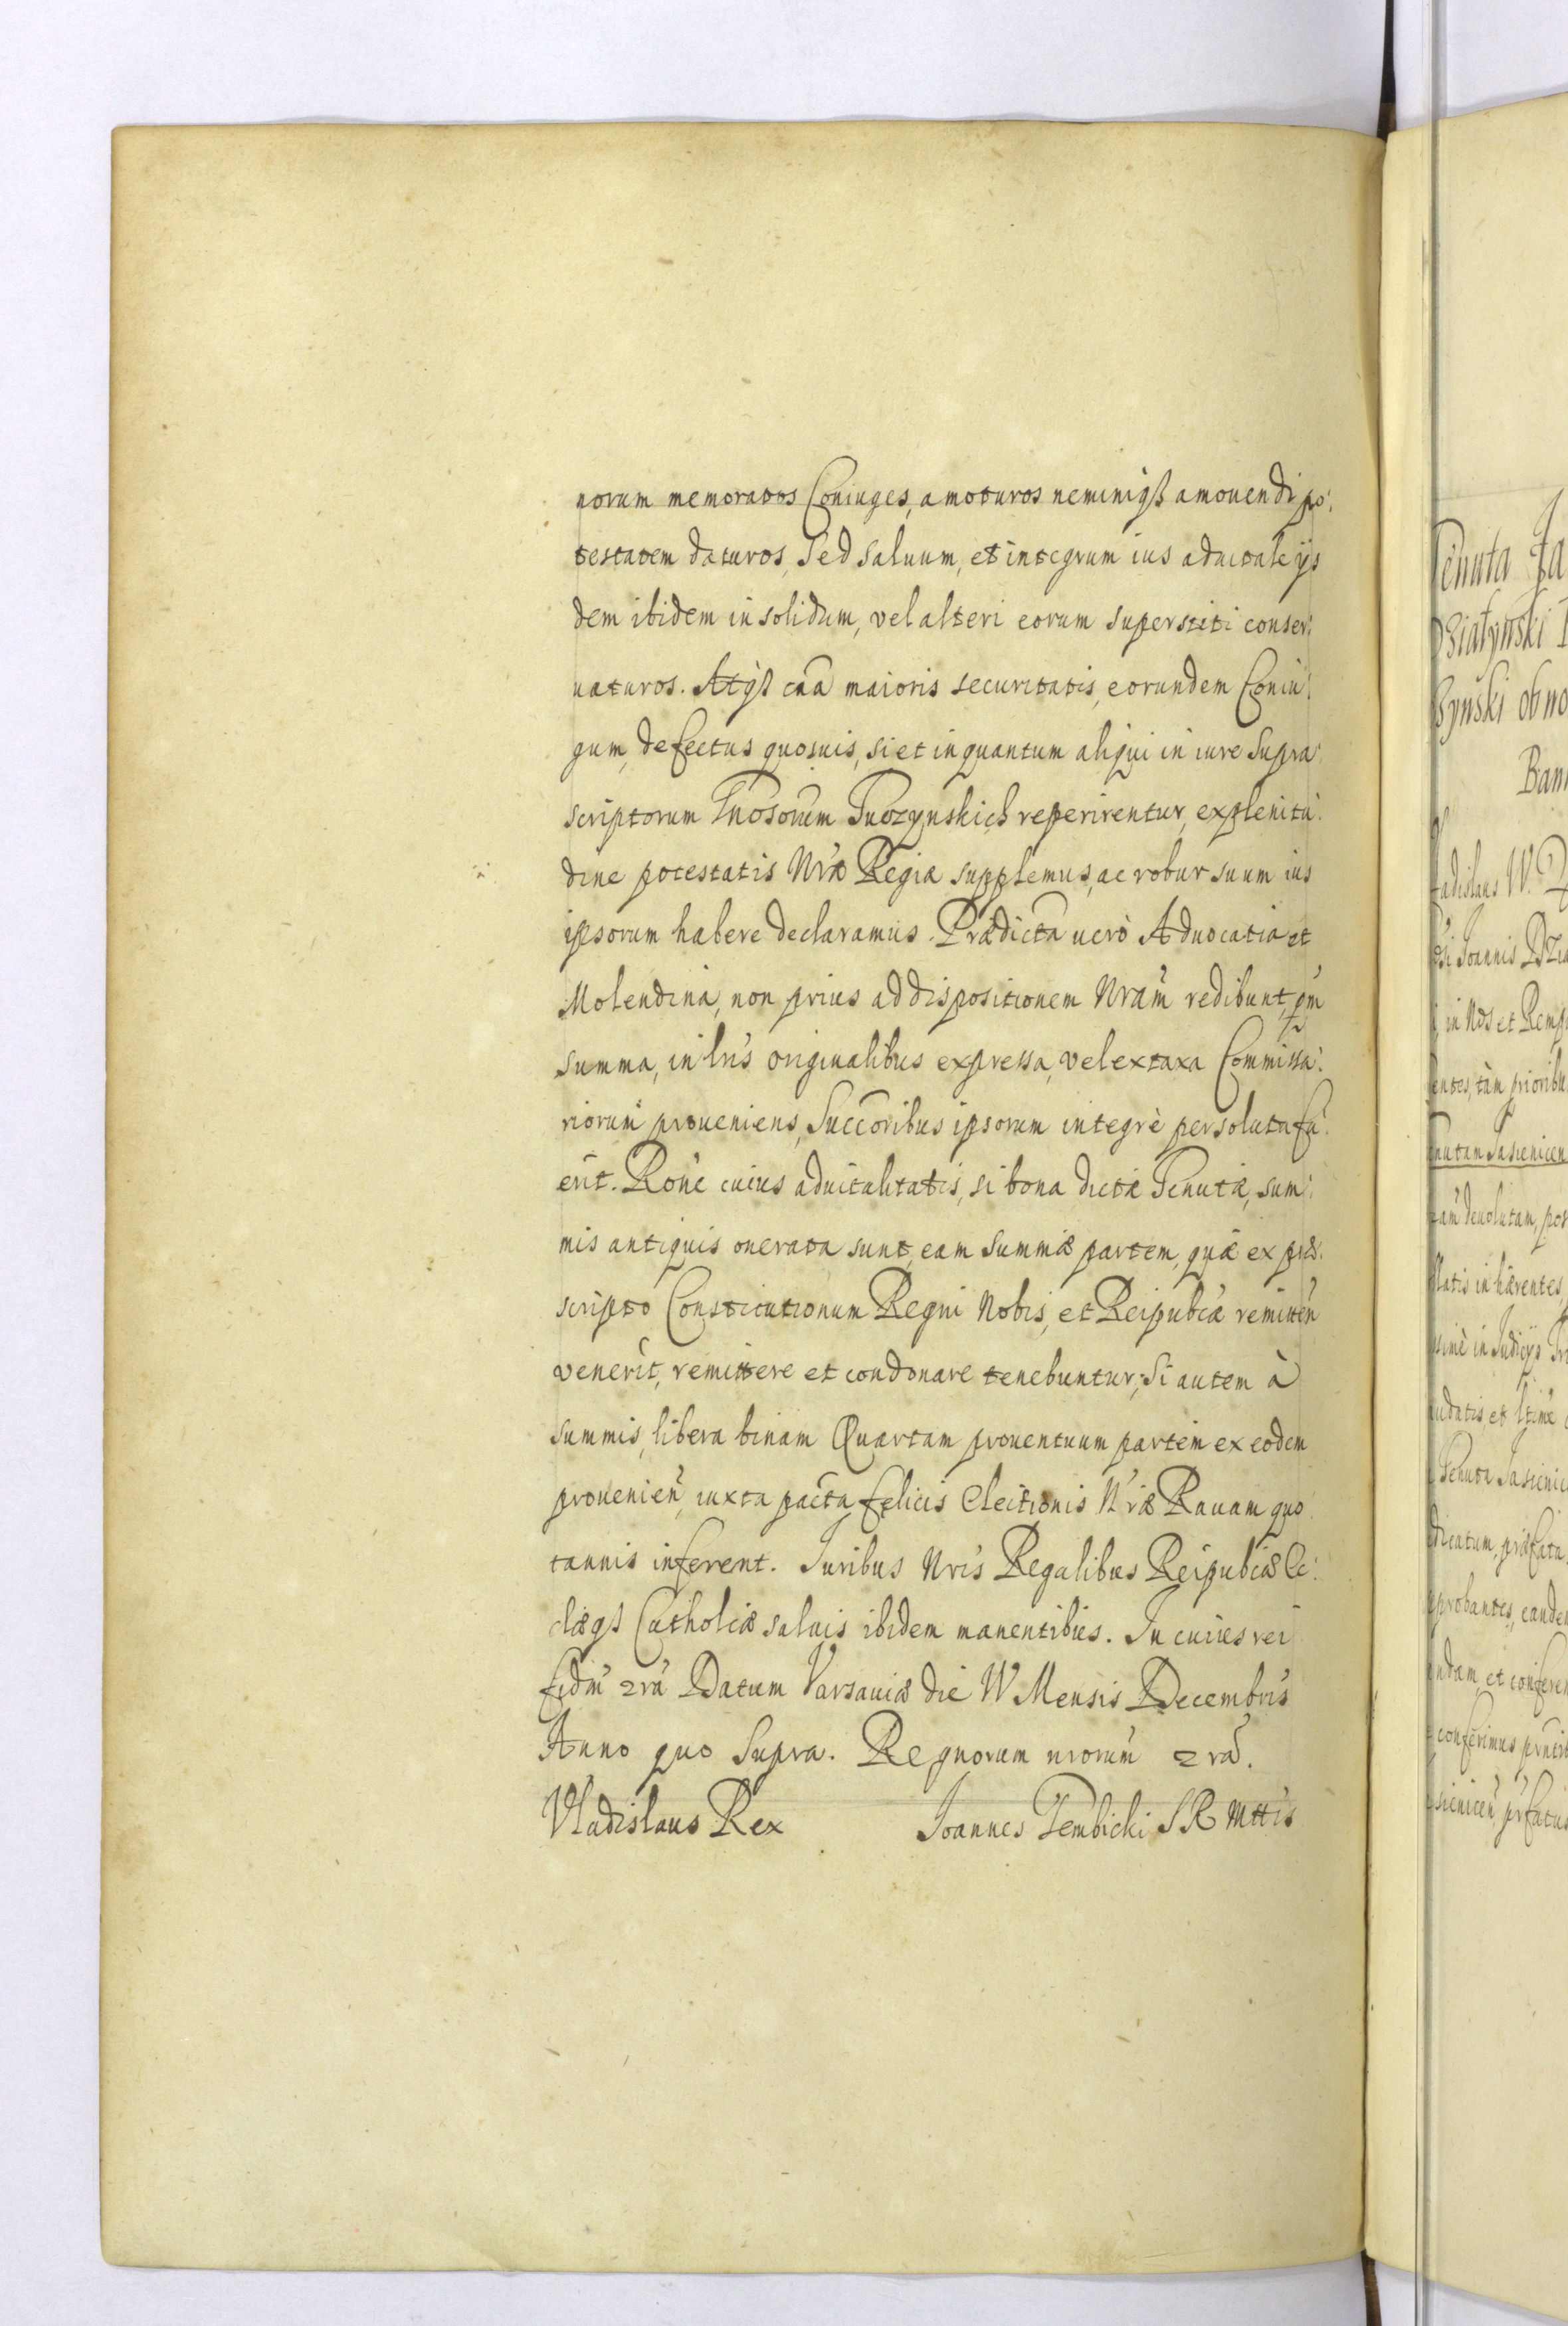 norum memoratos Coniuges, amoturos neminiqß amouendi po:
testatem daturos, sed saluum, et integrum ius aduitale ijs
dem ibidem in solidum, vel alteri eorum superstiti conser:
uaturos. Atqß cãa maioris securitatis, eorundem Coniu:
gum, defectus quosuis, si et inquantum aliqui in iure supra
scriptorum Gnosorum Tuczynskich reperirentur, ex plenitu:
dine potestatis Nræ Regiæ supplemus, ac robur suum ius
ipsorum habere declaramus. Prædicta uerò Aduocatia et
Molendina, non prius ad dispositionem Nram redibunt, qm
summa, in lris originalibus expressa, vel ex taxa Commissa:
riorum proueniens, Succoribus ipsorum integrè persoluta fu:
erit. Rone cuius aduitalitatis, si bona dictæ Tenutæ, sum:
mis antiquis onerata sunt, eam summæ partem, quæ ex præ:
scripto Constitutionum Regni Nobis, et Reipubcæ remitten
venerit, remittere et condonare tenebuntur; Si autem à
summis, libera binam Quartam prouentuum partem ex eodem
prouenien, iuxta pacta felicis Electionis Nræ Rauam quo
tannis inferent. Iuribus Nris Regalibus Reipubcæ Ec:
clæqß Catholicæ saluis ibidem manentibus. In cuius rei
fidm 2ra Datum Varsauiæ die IV Mensis Decembris
Anno quo supra. Regnorum nrorum 2ra.
Vladislaus Rex Joannes Gembicki S R Mttis
Tenuta Ja
Działynski
Bann
ladislaus IV. D
Joannis Dzia
in Nos et Remp
entes, tàm prioribu
nutam Jasienicen
tam deuolutam, pos
llatis inhærentes,
in Iudicijs Tri
udatis, et
Tenuta Jasienic
dicatum, præfata
probantes, eande
ndam, et conferen
conferimus
sienicen, præfatus